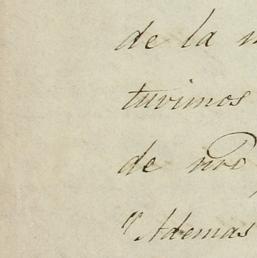 de la
tuvimos
de
"Ademas